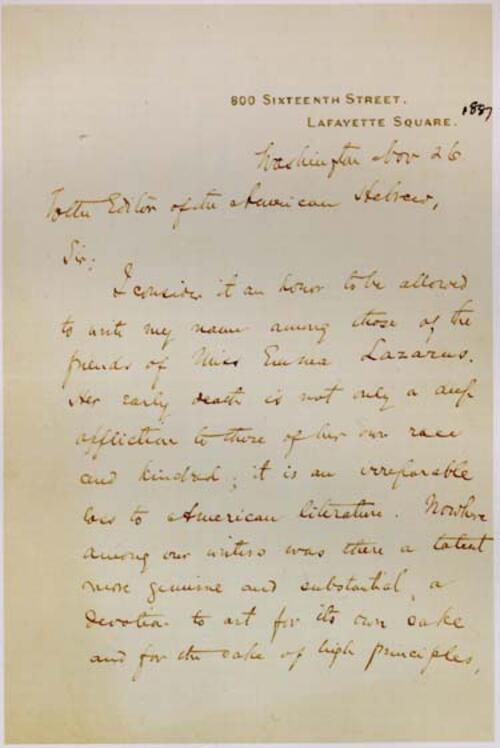 800 SIXTEENTH STREET.
LAFAYETTE SQUARE.
1887
Washington Nov 26
To the Editor of the American Hebrew,
Sir;
I consider it an honor to be allowed
to write my name among those of the
friends of Miss Emma Lazarus.
Her early death is not only a deep
affliction to those of her own race
and kindred; it is an irreparable
loss to American literature. Nowhere
among our writers was there a talent
more genuine and substantial, a
devotion to art for its own sake
and for the sake of high principles,